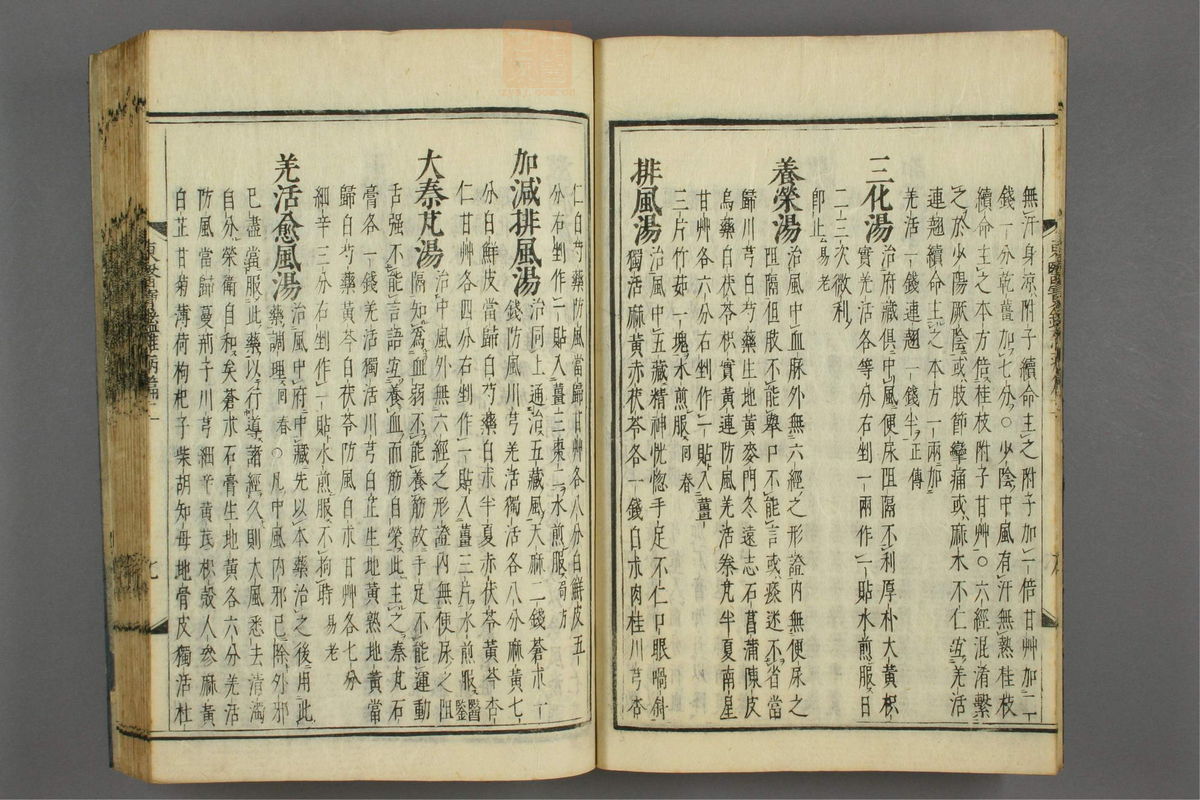 無汗身涼附子續命主之附子加一倍甘艸加二
錢一分乾薑加七分○少陰中風有汗無熱桂枝
續命主之本方倍桂枝附子甘艸○六經混淆繫
之於少陽厥陰或肢節攣痛或麻木不仁宜羌活
連翹續命主之本方一兩加
羌活一錢連翹一錢半正傳
三化湯治府藏俱中風便尿阻隔不利厚朴大黃枳
實羌活各等分右剉一兩作一貼水煎服日
二三次微利
即止易老
養榮湯治風中血脉外無六經之形證內無便尿之
阻隔但肢不能舉口不能言或痰迷不省當
歸川芎白芍藥生地黃麥門冬遠志石菖蒲陳皮
烏藥白茯苓枳實黃連防風羌活秦芃半夏南星
甘艸各六分右剉作一貼入薑
三片竹茹一塊水煎服回春
排風湯治風中五藏精神恍惚手足不仁口眼喎斜
獨活麻黃赤茯苓各一錢白朮肉桂川芎杏
仁白芍藥防風當歸甘艸各八分白鮮皮五
分右剉作一貼入薑三棗二水煎服局方
加減排風湯治同上通治五藏風天麻二錢蒼朮一
錢防風川芎羌活獨活各八分麻黃七
分白鮮皮當歸白芍藥白朮半夏赤茯苓黃芩杏
仁甘艸各四分右剉作一貼入薑三片水煎服醫鑒
大秦芃湯治中風外無六經之形證內無便尿之阻
隔知爲血弱不能養筋故手足不能運動
舌强不能言語宜養血而筋自榮此主之秦芃石
膏各一錢羌活獨活川芎白芷生地黃熟地黃當
歸白芍藥黃芩白茯苓防風白朮甘艸各七分
細辛三分右剉作一貼水煎服不拘時易老
羌活愈風湯治風中府中藏先以本藥治之後用此
藥調理回春○凡中風內邪已除外邪
已盡當服此藥以行導諸經久則大風悉去淸濁
自分榮衛自和矣蒼朮石膏生地黃各六分羌活
防風當歸蔓荊子川芎細辛黃芪枳殼人參麻黃
白芷甘菊薄荷枸杞子柴胡知母地骨皮獨活杜